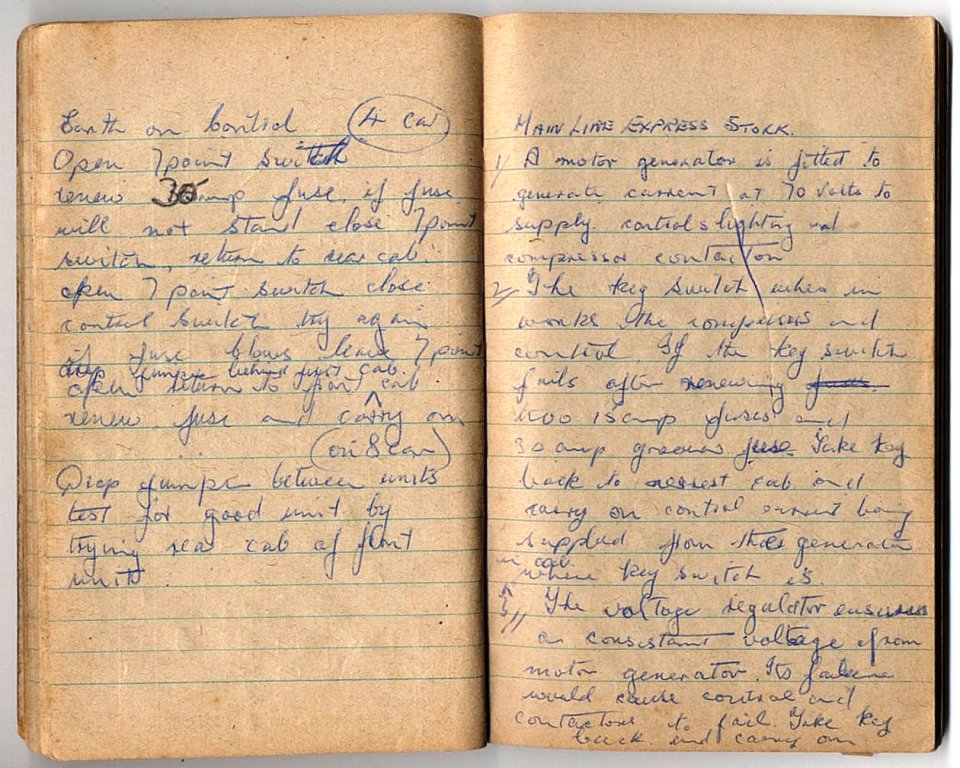 Earth on Control (4 car)
Open 7 point switch
renew 35 amp fuse, if fuse
will not stand close 7 point
switch, return to rear cab.
open 7 point switch close
control switch try again
if fuse blows leave 7 point
drop jumper behind first cab.
open return to front cab
renew fuse and carry on
(on 8 car)
Drop jumper between units
test for good unit by
trying rear cab of front
unit
MAIN LINE EXPRESS STOCK.
1/ A motor generator is fitted to
generate current at 70 volts to
supply. controls lighting and
compressor contactor
2/ The key switch when in
works the compressors and
control If the key switch
fails after renewing fuses.
two 15 amp fuses and
30 amp fuse. Take key
back to nearest cab and
carry on control current being
supplied from the generator
in cab
where key switch is.
3// The voltage regulator ensures
a consistant voltage from
motor generator. Its failure
would cause control and
contactors to fail. Take key
back and carry on